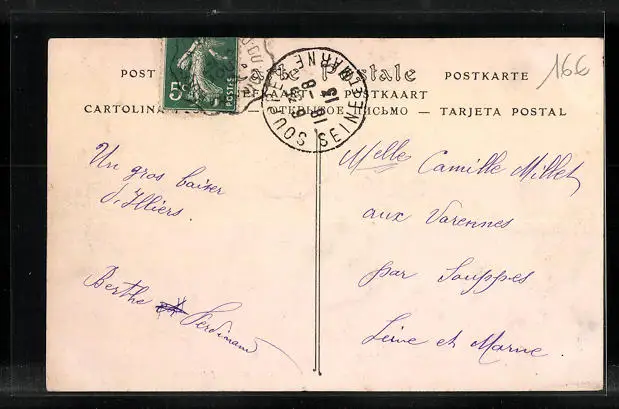 POST Carte Postale POSTKARTE
POSTKAART
CARTOLINA ПИСЬМО — TARJETA POSTAL
5c
POSTES
SOUPPES SEINE-ET-MARNE
16€
Un gros baiser
d'Illiers.
Berthe et Ferdinand
Melle Camille Millet
aux Varennes
par Souppes
Seine et Marne